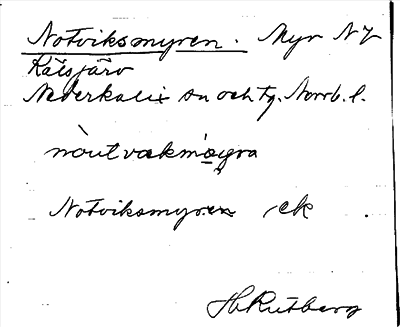 Notviksmyren. Myr NZ
Kälsjärv
Nederkalix sn och tg. Norrb. l.
Notviksmyren ek
H. Rutberg